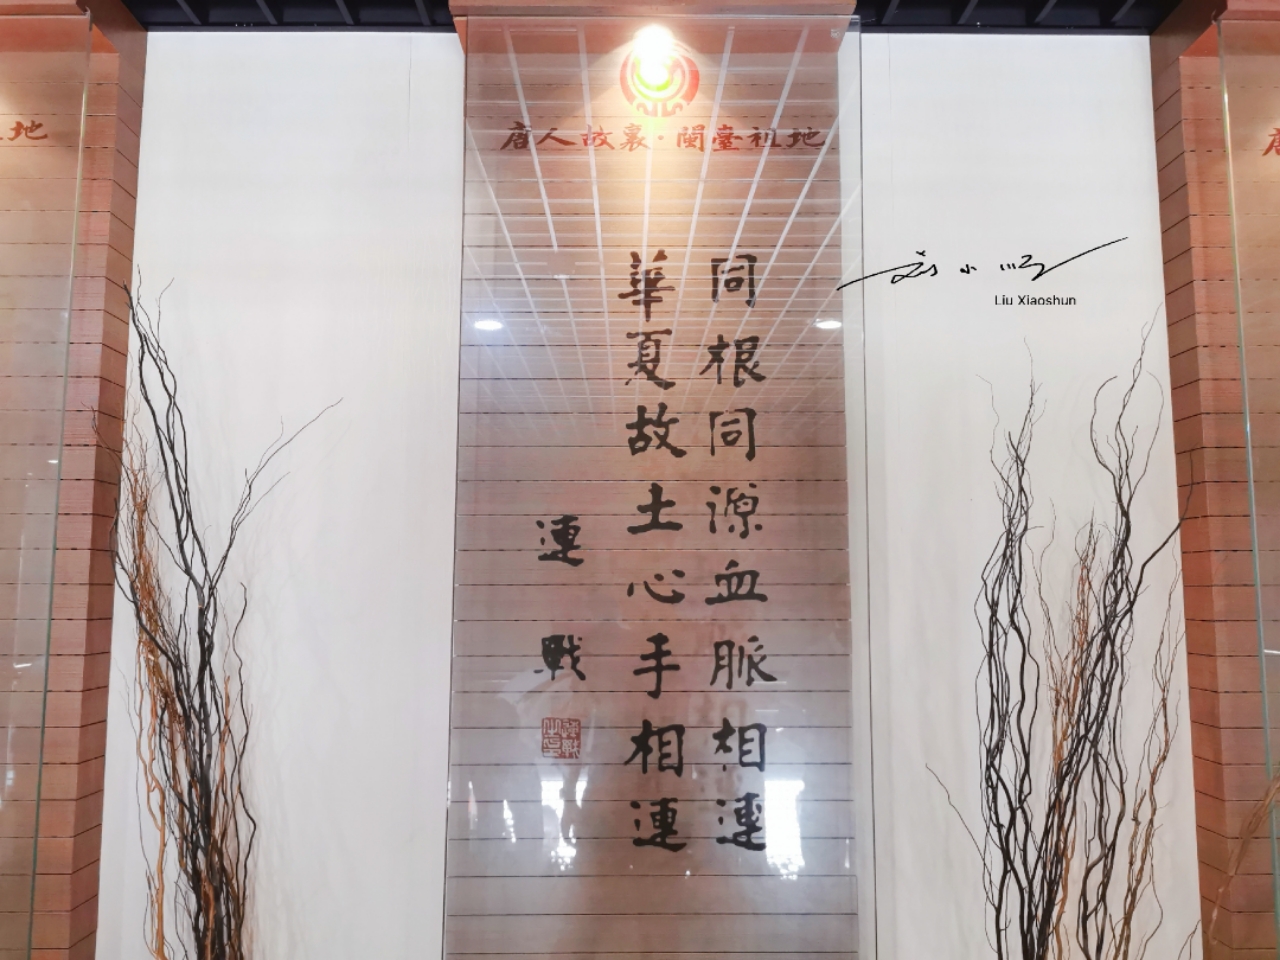 唐人故裏·閩臺祖地
同根同源血脈相連
華夏故土心手相連
連戰
刘小顺
Liu Xiaoshun
地